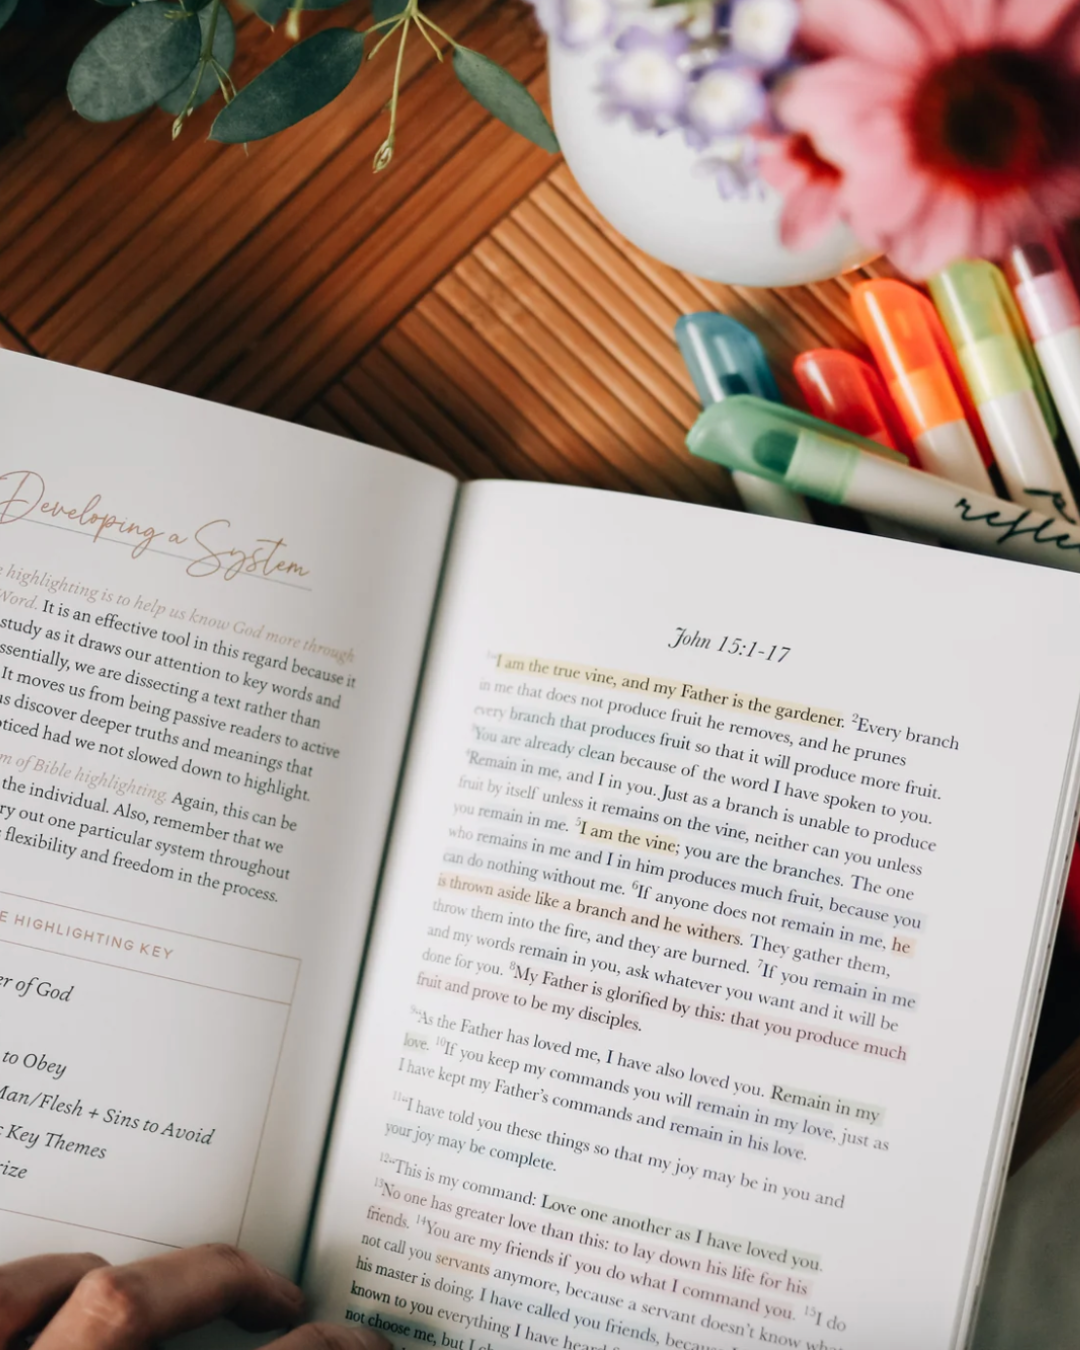 Developing a System
e highlighting is to help us know God more through
Word. It is an effective tool in this regard because it
study as it draws our attention to key words and
ssentially, we are dissecting a text rather than
It moves us from being passive readers to active
us discover deeper truths and meanings that
oticed had we not slowed down to highlight.
m of Bible highlighting. Again, this can be
the individual. Also, remember that we
ry out one particular system throughout
flexibility and freedom in the process.
E HIGHLIGHTING KEY
er of God
to Obey
Man/Flesh + Sins to Avoid
Key Themes
rize
refle
John 15:1-17
1"I am the true vine, and my Father is the gardener. 2Every branch
in me that does not produce fruit he removes, and he prunes
every branch that produces fruit so that it will produce more fruit.
3You are already clean because of the word I have spoken to you.
4Remain in me, and I in you. Just as a branch is unable to produce
fruit by itself unless it remains on the vine, neither can you unless
you remain in me. 5I am the vine; you are the branches. The one
who remains in me and I in him produces much fruit, because you
can do nothing without me. 6If anyone does not remain in me, he
is thrown aside like a branch and he withers. They gather them,
throw them into the fire, and they are burned. 7If you remain in me
and my words remain in you, ask whatever you want and it will be
done for you. 8My Father is glorified by this: that you produce much
fruit and prove to be my disciples.
9"As the Father has loved me, I have also loved you. Remain in my
love. 10If you keep my commands you will remain in my love, just as
I have kept my Father's commands and remain in his love.
11"I have told you these things so that my joy may be in you and
your joy may be complete.
12"This is my command: Love one another as I have loved you.
13No one has greater love than this: to lay down his life for his
friends. 14You are my friends if you do what I command you. 15I do
not call you servants anymore, because a servant doesn't know what
his master is doing. I have called you friends, becau
known to you everything I have heard
not choose me, but I ch